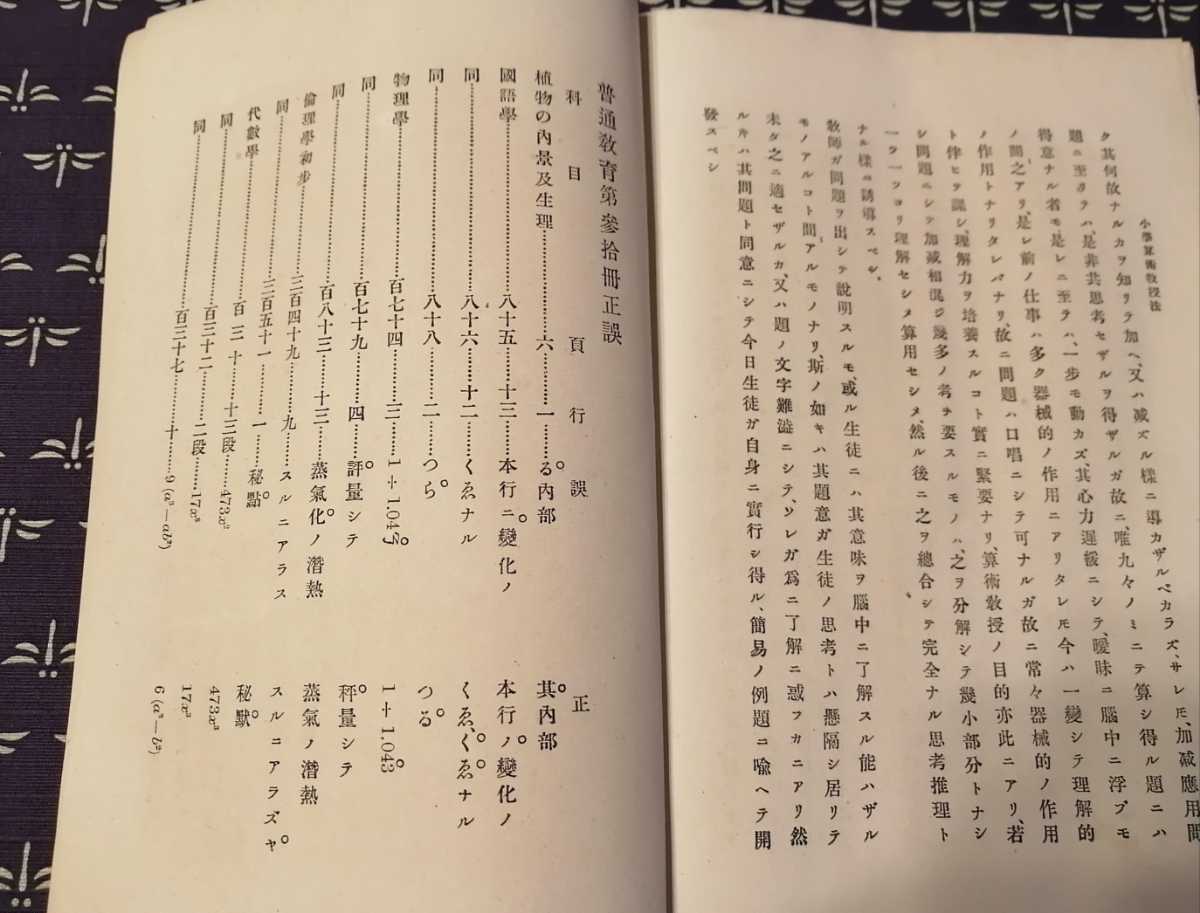 小學算術敎授法
ク其何故ナルカヲ知リテ加ヘ、又ハ減ズル樣ニ導カザルベカラズ、サレ𪜈、加減應用問
題ニ至リテハ、是非共思考セザルヲ得ザルガ故ニ、唯九々ノミニテ算シ得ル題ニハ
得意ナル者モ、是レニ至テハ、一步モ動カズ、其心力遲緩ニシテ、曖昧ニ腦中ニ浮ブモ
ノ間之アリ、是レ前ノ仕事ハ多ク器械的ノ作用ニアリタレ𪜈今ハ一變シテ理解的
ノ作用トナリタレバナリ、故ニ問題ハ口唱ニシテ可ナルガ故ニ常々器械的ノ作用
ト伴ヒテ課シ、理解力ヲ培養スルコト實ニ緊要ナリ、算術敎授ノ目的亦此ニアリ、若
シ問題ニシテ加減相混ジ幾多ノ考ヲ要スルモノハ、之ヲ分解シテ幾小部分トナシ
一ツ一ツヨリ理解セシメ算用セシメ、然ル後ニ之ヲ總合シテ完全ナル思考推理ト
ナル樣ニ誘導スベシ、
敎師ガ問題ヲ出シテ說明スルモ、或ル生徒ニハ其意味ヲ腦中ニ了解スル能ハザル
モノアルコト間アルモノナリ、斯ノ如キハ其題意ガ生徒ノ思考トハ懸隔シ居リテ
未ダ之ニ適セザルカ、又ハ題ノ文字難澁ニシテ、ソレガ爲ニ了解ニ惑フカニアリ然
ルキハ其問題ト同意ニシテ今日生徒ガ自身ニ實行シ得ル、簡易ノ例題ニ喩ヘテ開
發スベシ
普通敎育第參拾冊正誤
科目 頁 行 誤 正
植物の內景及生理………六………一………る內部 其內部
國語學………八十五………十三………本行ニ變化ノ 本行ノ變化ノ
同………八十六………十二………くゑナル くゑ、くゑナル
同………八十八………二………つら つる
物理學………百七十四………三………1+1.04g 1+1.043
同………百七十九………四………評量シテ 秤量シテ
同………百八十三………十三………蒸氣化ノ潛熱 蒸氣ノ潛熱
倫理學初步………三百四十九………九………スルニアラス スルニアラズヤ
同………三百五十一………一………秘點 秘默
代數學………百三十………十三段………473x² 473x³
同………百三十二………二段………17x³ 17x³
同………百三十七………十………9(a³−ab²) 6(a³−b²)